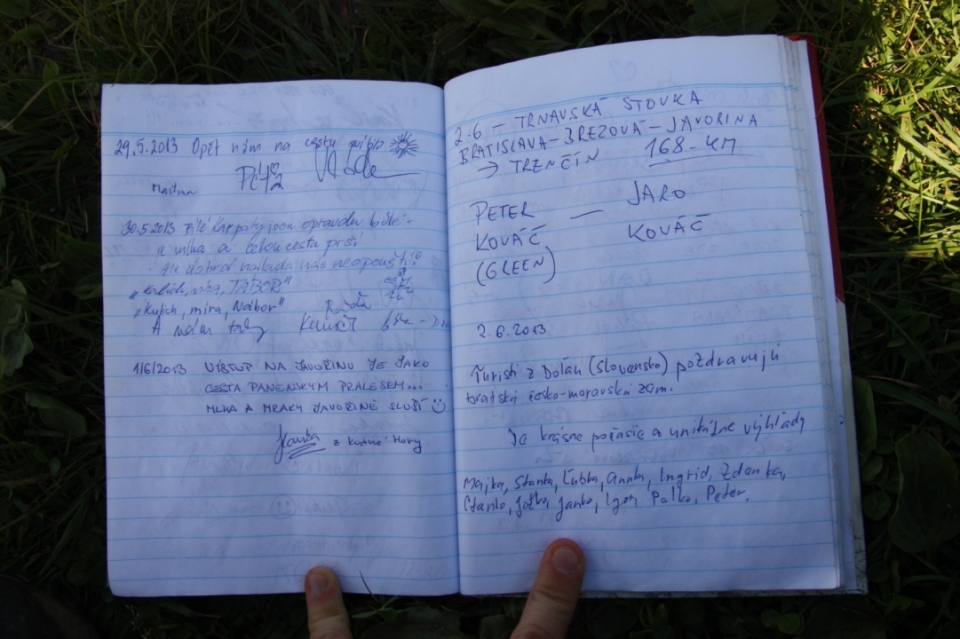 29.5.2013 Opět nám na cestu
30.5.2013 Bílé Karpaty jsou opravdu bílé -
a mlha a celou cestu prší
Ale dobrá nálada nás neopouští!
"kalich, víra, TÁBOR"
"Kutch, mira, Nabor"
A mám taky
1/6/2013 VÝSTUP NA JAVOŘINU JE JAKO
CESTA PANENSKÝM PRALESEM...
MLHA A MRAKY JAVOŘINĚ SLUŠÍ
Hanka z Kutné Hory
2.6 – TRNAVSKÁ STOVKA
BRATISLAVA–BREZOVÁ–JAVORINA
→ TRENČÍN 168-KM
PETER — JARO
KOVÁČ KOVÁČ
(GREEN)
2.6.2013
Turisti z Dolán (Slovensko) pozdravujú
bratskú česko-moravskú zem.
Je krásne počasie a unikátne výhľady
Majka, Stanka, Ľubka, Anna, Ingrid, Zdenka,
Stanko, Jožko, Janko, Igor, Palko, Peter.